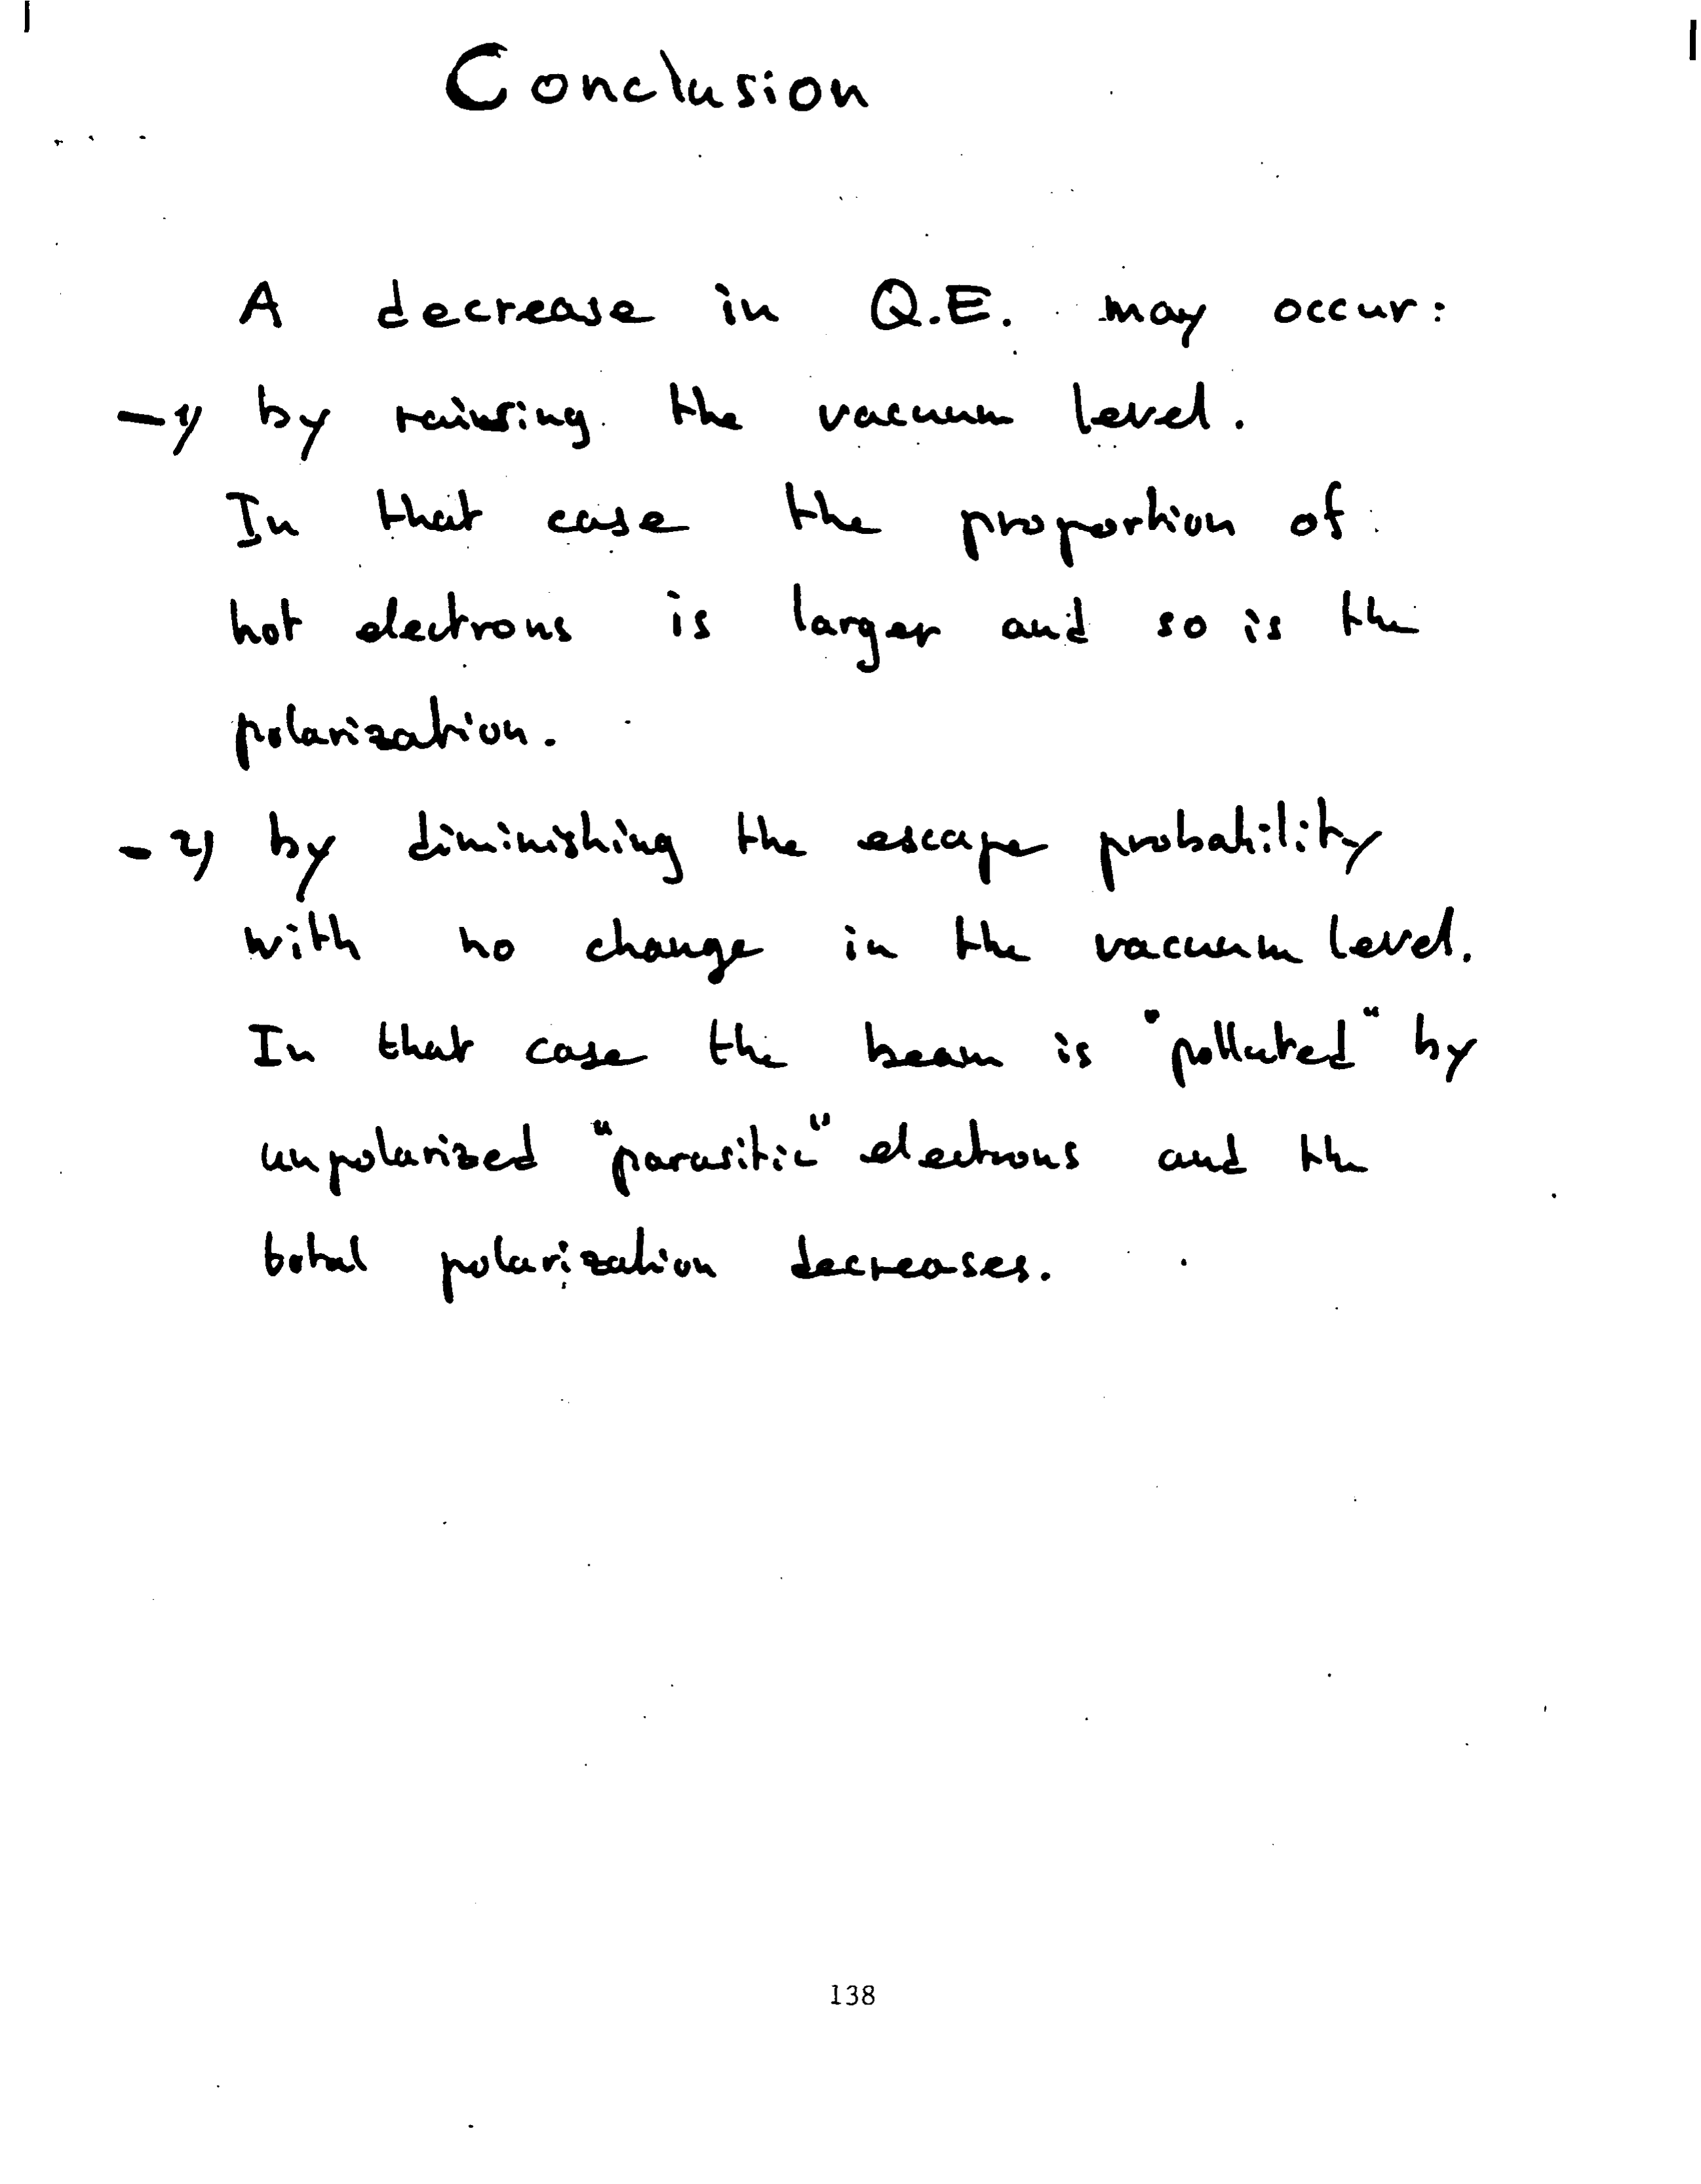 Conclusion
A decrease in Q.E. may occur:
- 1) by raising the vacuum level.
In that case the proportion of
hot electrons is larger and so is the
polarization.
- 2) by diminishing the escape probability
with no change in the vacuum level.
In that case the beam is "polluted" by
unpolarized "parasitic" electrons and the
total polarization decreases.
138